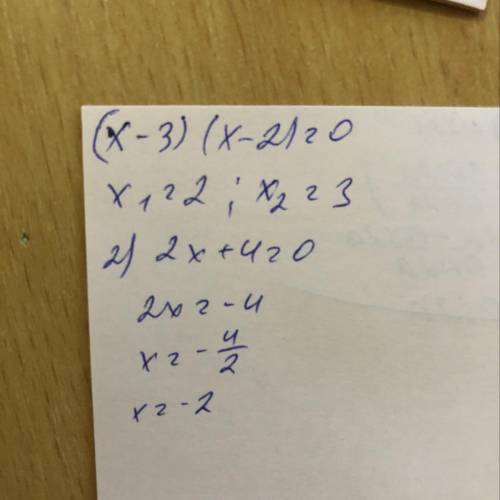 (x-3)(x-2)=0
x₁=2 ; x₂=3
2) 2x+4=0
2x=-4
x=-4/2
x=-2